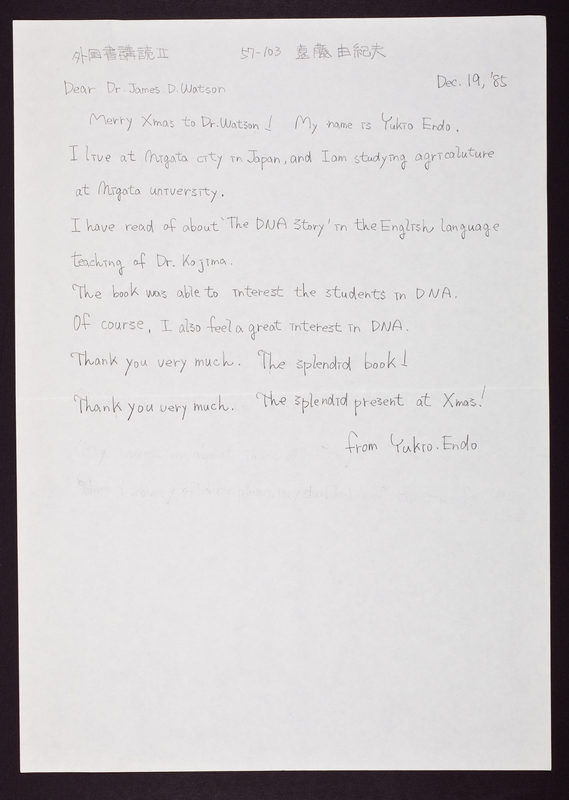 外国書購読II 57-103 遠藤由紀夫
Dec. 19, '85
Dear Dr. James. D. Watson
Merry Xmas to Dr. Watson! My name is Yukio Endo.
I live at Niigata city in Japan, and I am studying agricaluture
at Niigata university.
I have read of about 'The DNA Story' in the English language
teaching of Dr. Kojima.
The book was able to interest the students in DNA.
Of course, I also feel a great interest in DNA.
Thank you very much. The splendid book!
Thank you very much. The splendid present at Xmas!
from Yukio. Endo